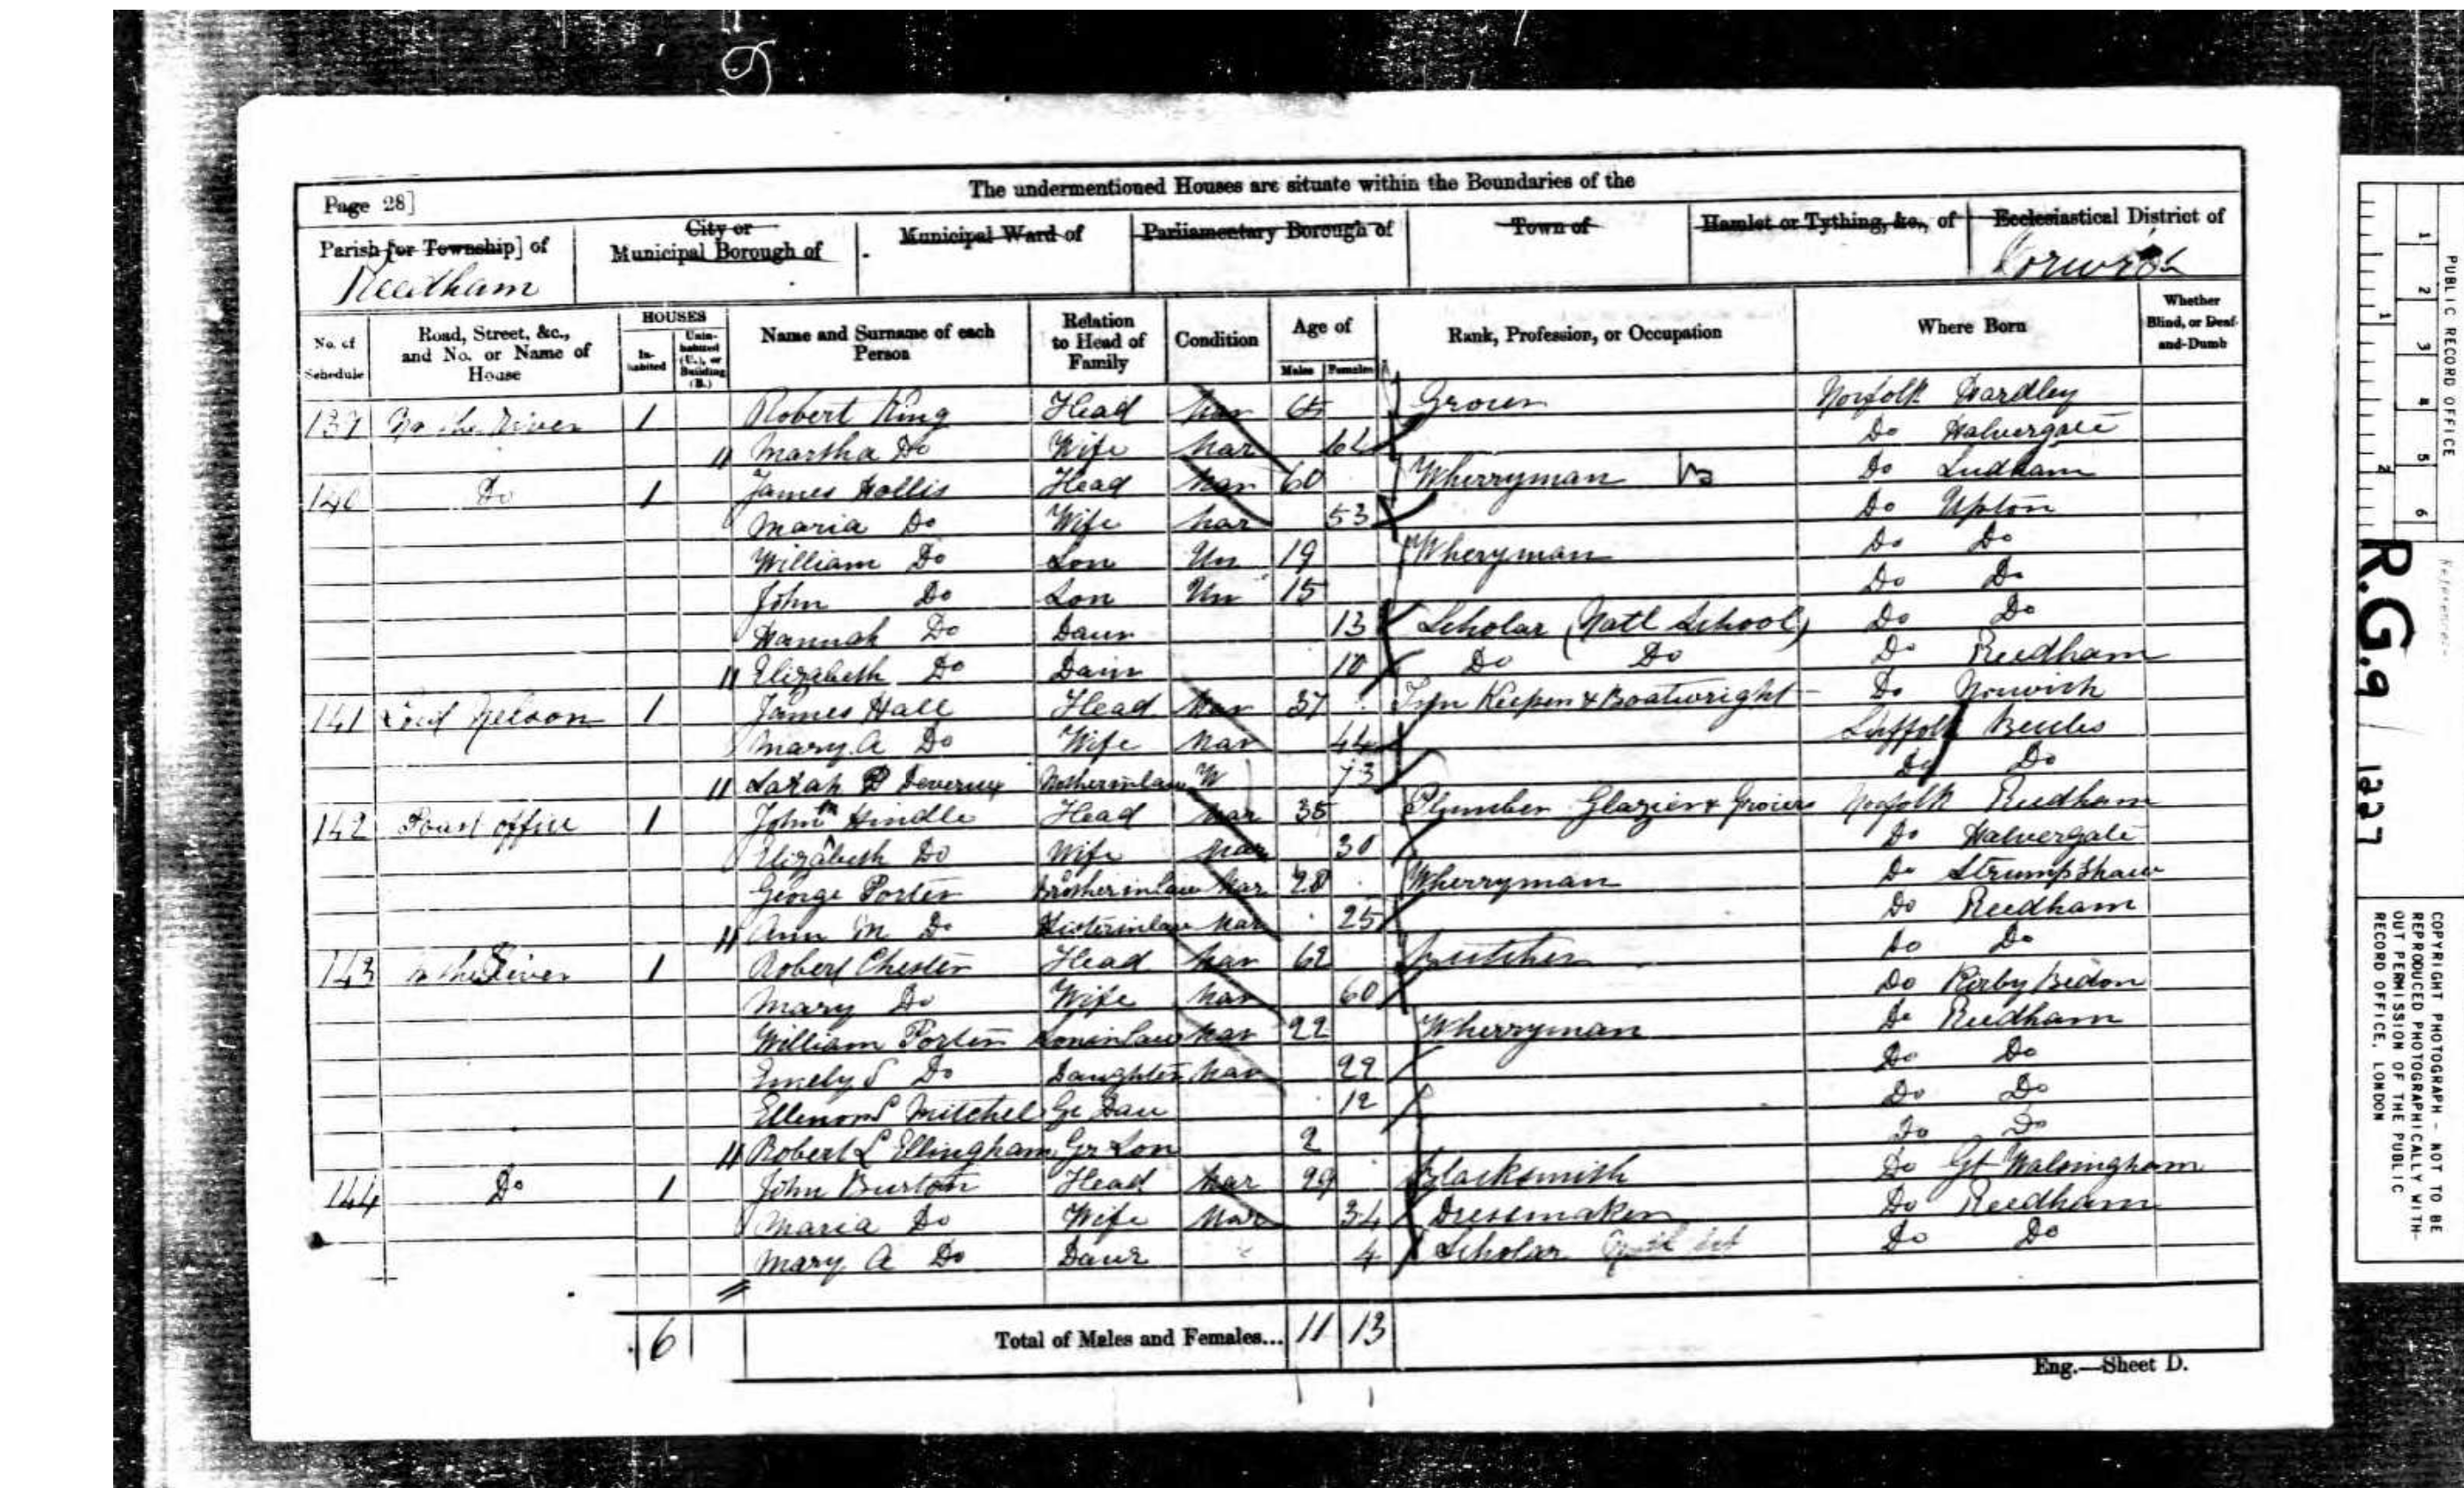 Page 28]
The undermentioned Houses are situate within the Boundaries of the
Parish [or Township] of
City or Municipal Borough of
Municipal Ward of
Parliamentary Borough of
Town of
Hamlet or Tything, &c., of
Ecclesiastical District of
Reedham
Norwich
No. of Schedule
Road, Street, &c., and No. or Name of House
HOUSES
In-habited
Unin-habited (U.), or Building (B.)
Name and Surname of each Person
Relation to Head of Family
Condition
Age of
Males
Females
Rank, Profession, or Occupation
Where Born
Whether Blind, or Deaf-and-Dumb
River 1 Robert King Head Mar Grocer Norfolk Hardley
Martha Do Wife Mar Do Halvergate
140 Do 1 James Hollis Head Mar 60 Wherryman Do Ludham
Maria Do Wife Mar 53 Do Upton
William Do Son Un 19 Wheryman Do Do
John Do Son Un 15 Do Do
Hannah Do Daur 13 Scholar (Natl School) Do Do
Elizabeth Do Daur 10 Do Do Do Reedham
141 Lord Nelson 1 James Hall Head Mar 37 Inn Keeper & Boatwright Do Norwich
Mary A Do Wife Mar 44 Suffolk Beccles
Sarah Mother in law W 73 Do Do
142 Post office 1 John Hindle Head Mar 35 Plumber Glazier & Grocer Norfolk Reedham
Elizabeth Do Wife Mar 30 Do Halvergate
George Porter Brother in law Mar 28 Wherryman Do Strumpshaw
Ann M Do Sister in law Mar 25 Do Reedham
143 River 1 Robert Chester Head Mar 62 Butcher Do Do
Mary Do Wife Mar 60 Do Kirby Bedon
William Porter Son in law Mar 22 Wherryman Do Reedham
Emely S Do Daughter Mar 22 Do Do
Ellenor S Mitchel Gr Dau 12 Do Do
Robert L Ellingham Gr Son 2 Do Do
144 Do 1 John Burton Head Mar 29 Blacksmith Do Gt Walsingham
Maria Do Wife Mar 34 Dressmaker Do Reedham
Mary A Do Daur 4 Scholar Do Do
6
Total of Males and Females... 11 13
Eng.—Sheet D.
PUBLIC RECORD OFFICE
1 2 3 4 5 6
1 2
Reference:-
R.G. 9 / 1227
COPYRIGHT PHOTOGRAPH - NOT TO BE
REPRODUCED PHOTOGRAPHICALLY WITH-
OUT PERMISSION OF THE PUBLIC
RECORD OFFICE, LONDON